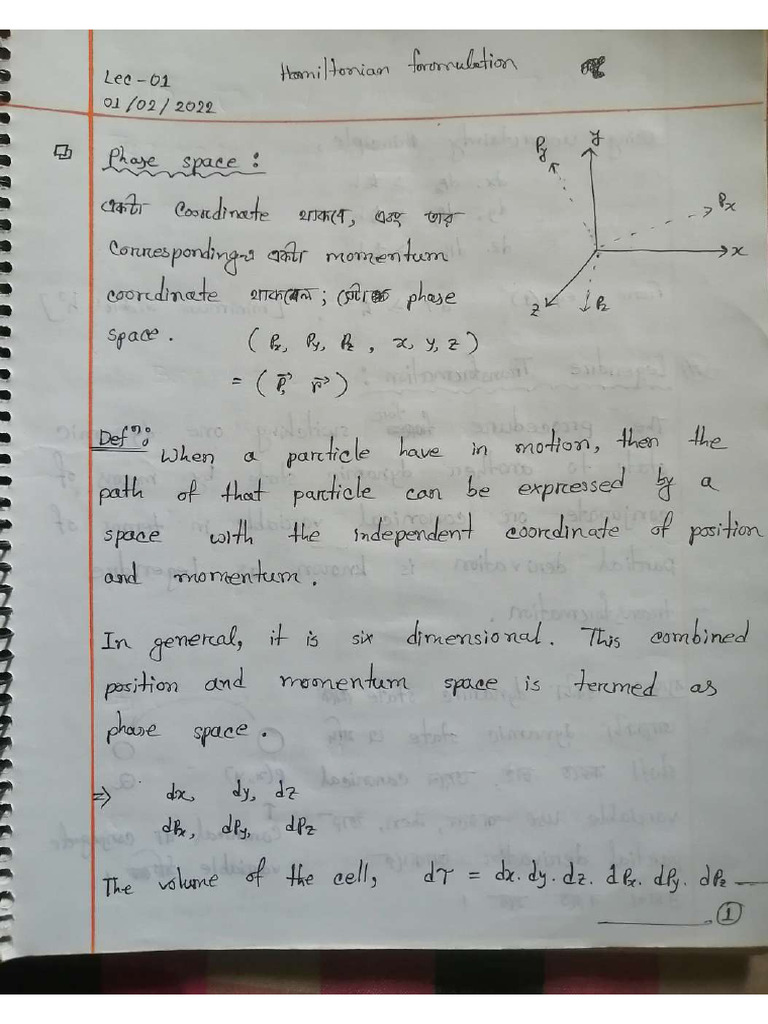 Hamiltonian foromulation
Lec-01
01/02/2022
Phase space:
একটা Coordinate থাকবে, এবং তার
Corresponding-এ একটা momentum
coordinate থাকবে; সেটাই phase
space.
(Pₓ, P_y, P_z, x, y, z)
= (P⃗, r⃗)
y
P_y
Pₓ
x
z
P_z
Defⁿ:
When a particle have in motion, then the
path of that particle can be expressed by a
space with the independent coordinate of position
and momentum.
In general, it is six dimensional. This combined
position and momentum space is termed as
phase space.
⇒ dx, dy, dz
dPₓ, dP_y, dP_z
The volume of the cell, dτ = dx. dy. dz. dPₓ. dP_y. dP_z —
————. ①